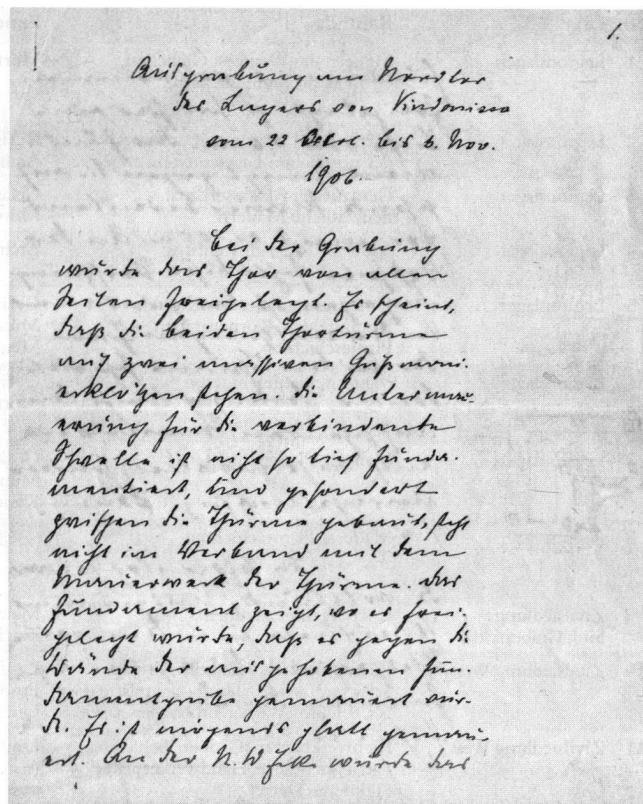 1.
Ausgrabung am Nordtor
des Lagers von Vindonissa
vom 22 Okt. bis 6. Nov.
1906.
Bei der Grabung
wurde das Thor von allen
Seiten freigelegt. Es scheint,
daß die beiden Thortürme
auf zwei massiven Gußmau-
erklötzen stehen. Die Untermau-
erung für die verbindente
Schwelle ist nicht so tief funda-
mentiert, und gesondert
zwischen die Thürme gebaut, steht
nicht im Verband mit dem
Mauerwerk der Thürme. Das
Fundament zeigt, wo es frei-
gelegt wurde, daß es gegen die
Wände der ausgehobenen Fun-
damentgrube gemauert wur-
de. Es ist nirgends glatt gemau-
ert. An der N.W Ecke wurde das